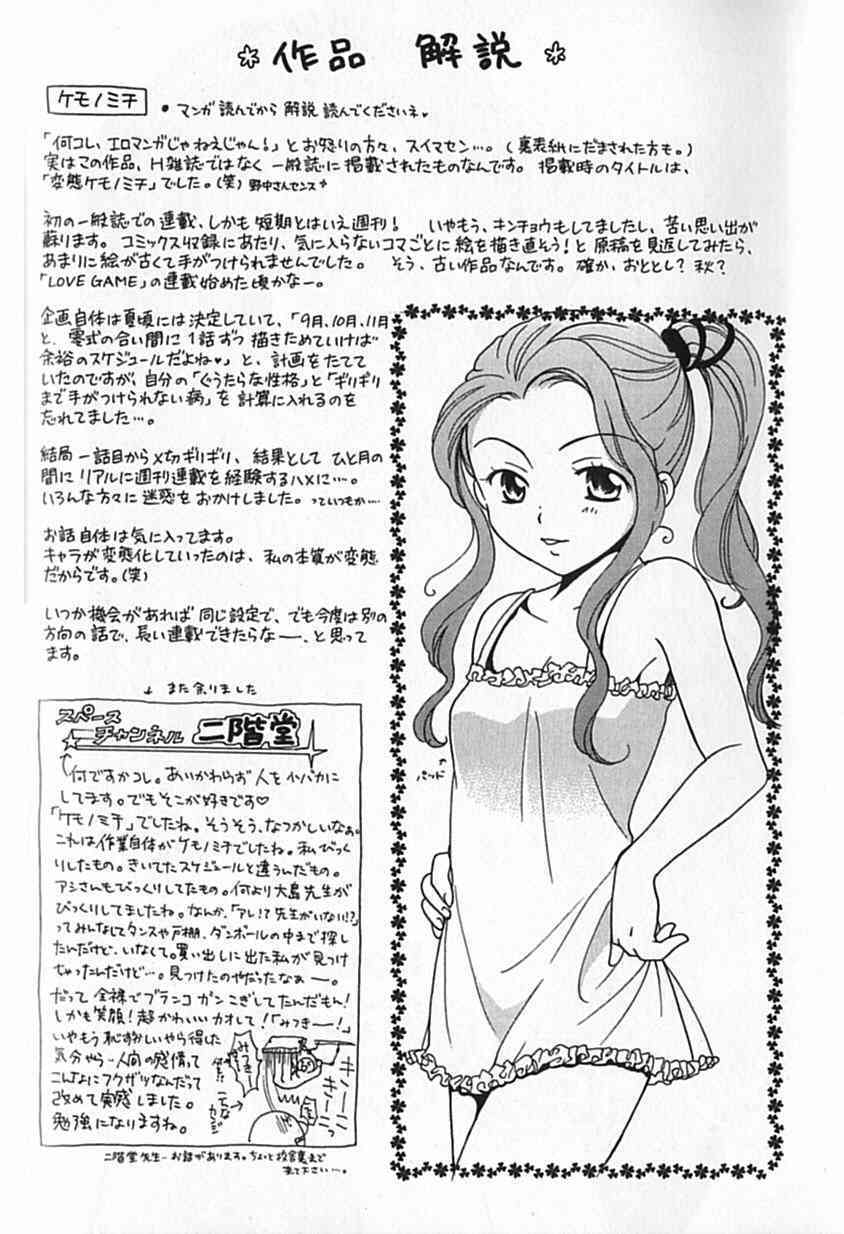 ＊作品 解説＊
ケモノミチ
・マンガ読んでから解説読んでくださいネ♥
「何コレ、エロマンガじゃねえじゃん!」とお怒りの方々、スイマセン…。(裏表紙にだまされた方も。)
実はこの作品、H雑誌ではなく一般誌に掲載されたものなんです。掲載時のタイトルは、
「変態ケモノミチ」でした。(笑) 野中さんセンス
初の一般誌での連載、しかも短期とはいえ週刊! いやもう、キンチョウもしてましたし、苦い思い出が
蘇ります。コミックス収録にあたり、気に入らないコマごとに絵を描き直そう!と原稿を見返してみたら、
あまりに絵が古くて手がつけられませんでした。 そう、古い作品なんです。確か、おととし?秋?
「LOVE GAME」の連載始めた頃かなー。
企画自体は夏頃には決定していて、「9月、10月、11月
と、零式の合い間に1話ずつ描きためていけば
余裕のスケジュールだよね♥」と、計画をたてて
いたのですが、自分の「ぐうたらな性格」と「ギリギリ
まで手がつけられない病」を計算に入れるのを
忘れてました…。
結局一話目から〆切ギリギリ、結果としてひと月の
間にリアルに週刊連載を経験するハメに…。
いろんな方々に迷惑をおかけしました。っていつもか…。
お話自体は気に入ってます。
キャラが変態化していったのは、私の本質が変態
だからです。(笑)
いつか機会があれば同じ設定で、でも今度は別の
方向の話で、長い連載できたらなー、と思って
ます。
↓ また余りました
スペース
チャンネル 二階堂
何ですかコレ。あいかわらず人を小バカに
してます。でもそこが好きです♡
「ケモノミチ」でしたね。そうそう、なつかしいなぁ。
これは作業自体がケモノミチでしたね。私びっく
りしたもの。きいてたスケジュールと違うんだもの。
アシさんもびっくりしてたもの。何より大島先生が
びっくりしてましたね。なんか、「アレ!?先生がいない!?」
ってみんなしてタンスや戸棚、ダンボールの中まで探し
たんだけど、いなくて。買い出しに出た私が見つけ
ちゃったんだけど…。見つけたのやだったなぁー。
だって全裸でブランコガンこぎしてたんだもん!
しかも笑顔!超かわいいカオして!「みつきー!」
いやもう恥ずかしいやら得した
気分やら…人間の感情って
こんなにフクザツなんだって
改めて実感しました。
勉強になりますね。
みつきー
こんな
カンジ
キーコ
キーコッ
パッド
二階堂先生…お話があります。ちょっと校舎裏まで
来て下さい…。